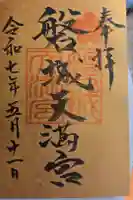 奉拝
磐城天満宮
令和七年五月十一日